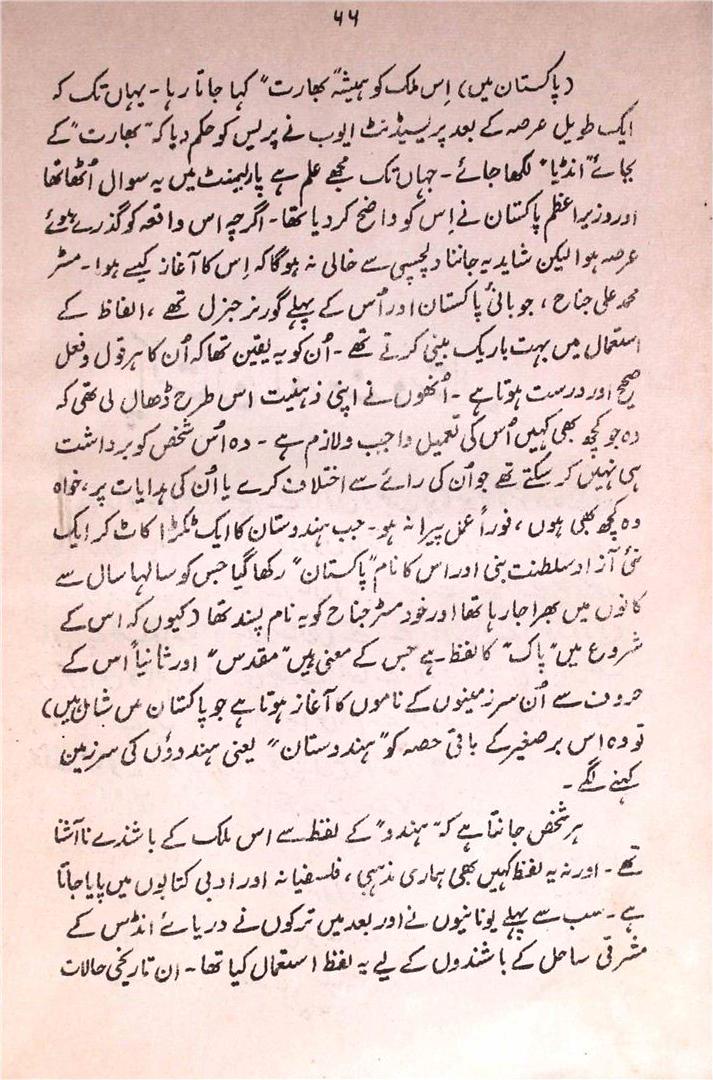 ۶۶
(پاکستان میں) اِس ملک کو ہمیشہ "بھارت" کہا جاتا رہا۔ یہاں تک کہ
ایک طویل عرصہ کے بعد پریسیڈنٹ ایوب نے پریس کو حکم دیا کہ "بھارت" کے
بجائے "انڈیا" لکھا جائے۔ جہاں تک مجھے علم ہے پارلیمنٹ میں یہ سوال اُٹھا تھا
اور وزیر اعظم پاکستان نے اِس کو واضح کر دیا تھا۔ اگرچہ اس واقعہ کو گذرے ہوئے
عرصہ ہوا لیکن شاید یہ جاننا دلچسپی سے خالی نہ ہوگا کہ اِس کا آغاز کیسے ہوا۔ مسٹر
محمد علی جناح، جو بانیٔ پاکستان اور اُس کے پہلے گورنر جنرل تھے، الفاظ کے
استعمال میں بہت باریک بینی کرتے تھے۔ اُن کو یہ یقین تھا کہ اُن کا ہر قول و فعل
صحیح اور درست ہوتا ہے۔ اُنھوں نے اپنی ذہنیت اس طرح ڈھال لی تھی کہ
وہ جو کچھ بھی کہیں اُس کی تعمیل واجب و لازم ہے۔ وہ اُس شخص کو برداشت
ہی نہیں کر سکتے تھے جو اُن کی رائے سے اختلاف کرے یا اُن کی ہدایات پر، خواہ
وہ کچھ بھی ہوں، فوراً عمل پیرا نہ ہو۔ جب ہندوستان کا ایک ٹکڑا کاٹ کر ایک
نئی آزاد سلطنت بنی اور اس کا نام "پاکستان" رکھا گیا جس کو سالہا سال سے
کانوں میں بھرا جا رہا تھا اور خود مسٹر جناح کو یہ نام پسند تھا (کیوں کہ اس کے
شروع میں "پاک" کا لفظ ہے جس کے معنی ہیں "مقدس" اور ثانیاً اس کے
حروف سے اُن سرزمینوں کے ناموں کا آغاز ہوتا ہے جو پاکستان میں شامل ہیں)
تو وہ اس برصغیر کے باقی حصہ کو "ہندوستان" یعنی ہندوؤں کی سرزمین
کہنے لگے۔
ہر شخص جانتا ہے کہ "ہندو" کے لفظ سے اس ملک کے باشندے ناآشنا
تھے۔ اور نہ یہ لفظ کہیں بھی ہماری مذہبی، فلسفیانہ اور ادبی کتابوں میں پایا جاتا
ہے۔ سب سے پہلے یونانیوں نے اور بعد میں ترکوں نے دریائے انڈس کے
مشرقی ساحل کے باشندوں کے لیے یہ لفظ استعمال کیا تھا۔ ان تاریخی حالات